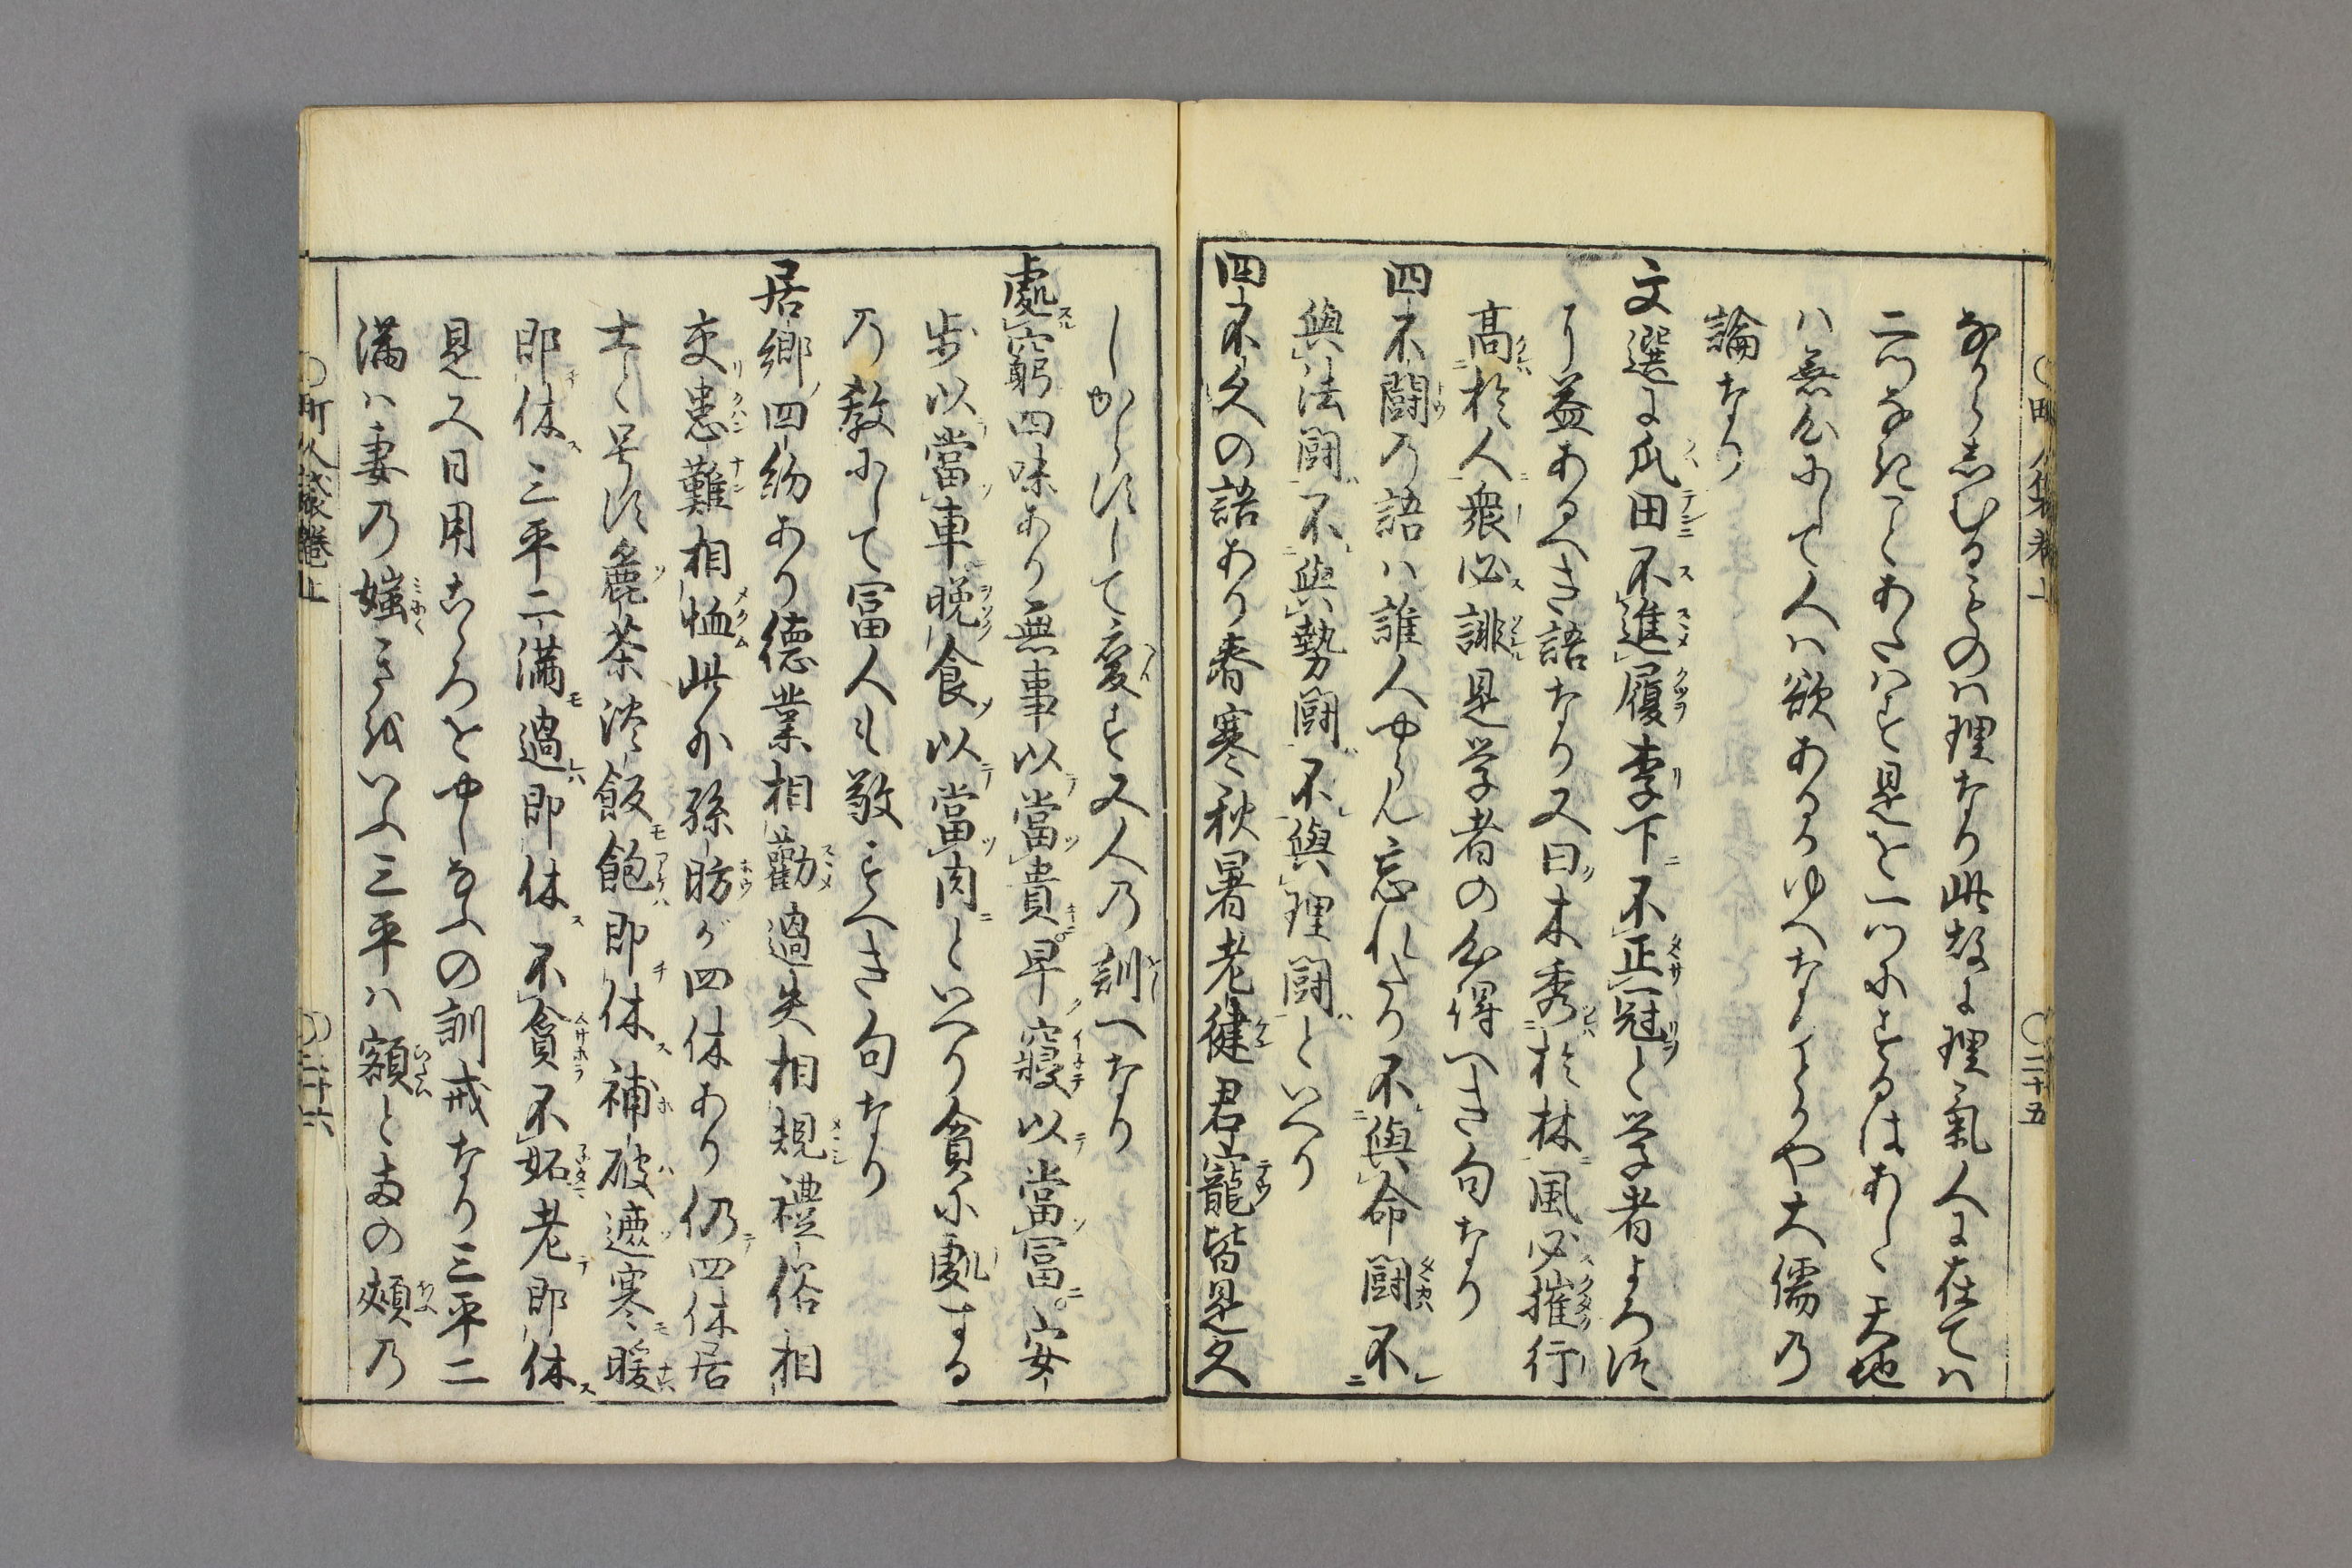 ならしむるものは理なり此故に理氣人に在てハ
二つなきことあたハす是を一つにするはあしく天地
ハ無心にして人ハ欲あるかゆへなりとかや大儒乃
論なり
文選に瓜田不進履李下不正冠と学者よろつ
に益あるへき語なり又曰木秀於林風必摧行
高於人衆必誹是学者の心得へき句なり
四不闘乃語ハ誰人やらん忘れたり不與命闘不
與法闘不與勢闘不與理闘といへり
四不久の語あり春寒秋暑老健君寵皆是久
しからすして変す又人乃訓へなり
處窮四味あり無事以當貴早寢以當冨安
步以當車晩食以當肉といへり貧に處する
乃教にして冨人も敬すへき句なり
居鄉四約あり德業相勸過失相規禮俗相
交患難相恤此外孫昉が四休あり仍四休居
士と号す麁茶淡飯飽即休補破遮寒暖
即休三平二滿過即休不貪不妬老即休
是又日用こころをやしなふの訓戒なり三平二
滿ハ妻乃媸きをいふ三平ハ額とはの頰乃
町人袋卷上
二十五
町人袋卷上
二十六